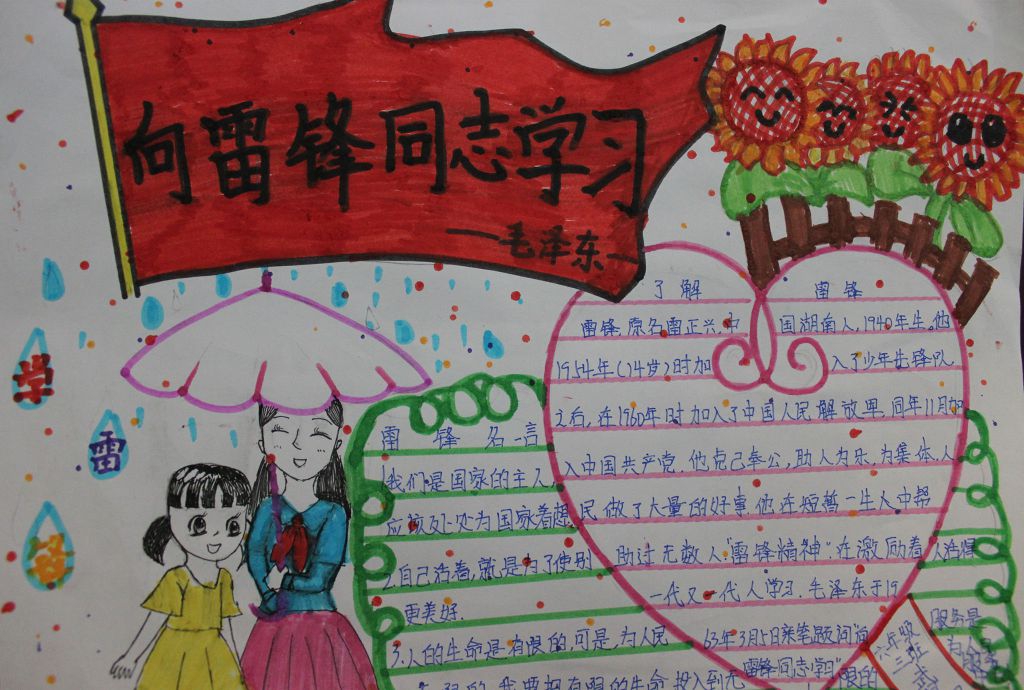 向雷锋同志学习
—毛泽东—
学
雷
锋
了解 雷锋
雷锋,原名雷正兴,中国湖南人,1940年生。他
1954年(14岁)时加入了少年先锋队,
之后,在1960年时加入了中国人民解放军,同年11月加
入中国共产党.他克己奉公,助人为乐,为集体,人
民做了大量的好事他在短暂一生人中帮
助过无数人“雷锋精神”在激励着
一代又一代人学习.毛泽东于19
63年3月5日亲笔题词道
雷锋同志学习”
雷锋名言
1我们是国家的主人,
应该处处为国家着想.
2.自己活着,就是为了使别
人活得
更美好.
3.人的生命是有限的,可是,为人民
服务是
投入到无
限的
六年级